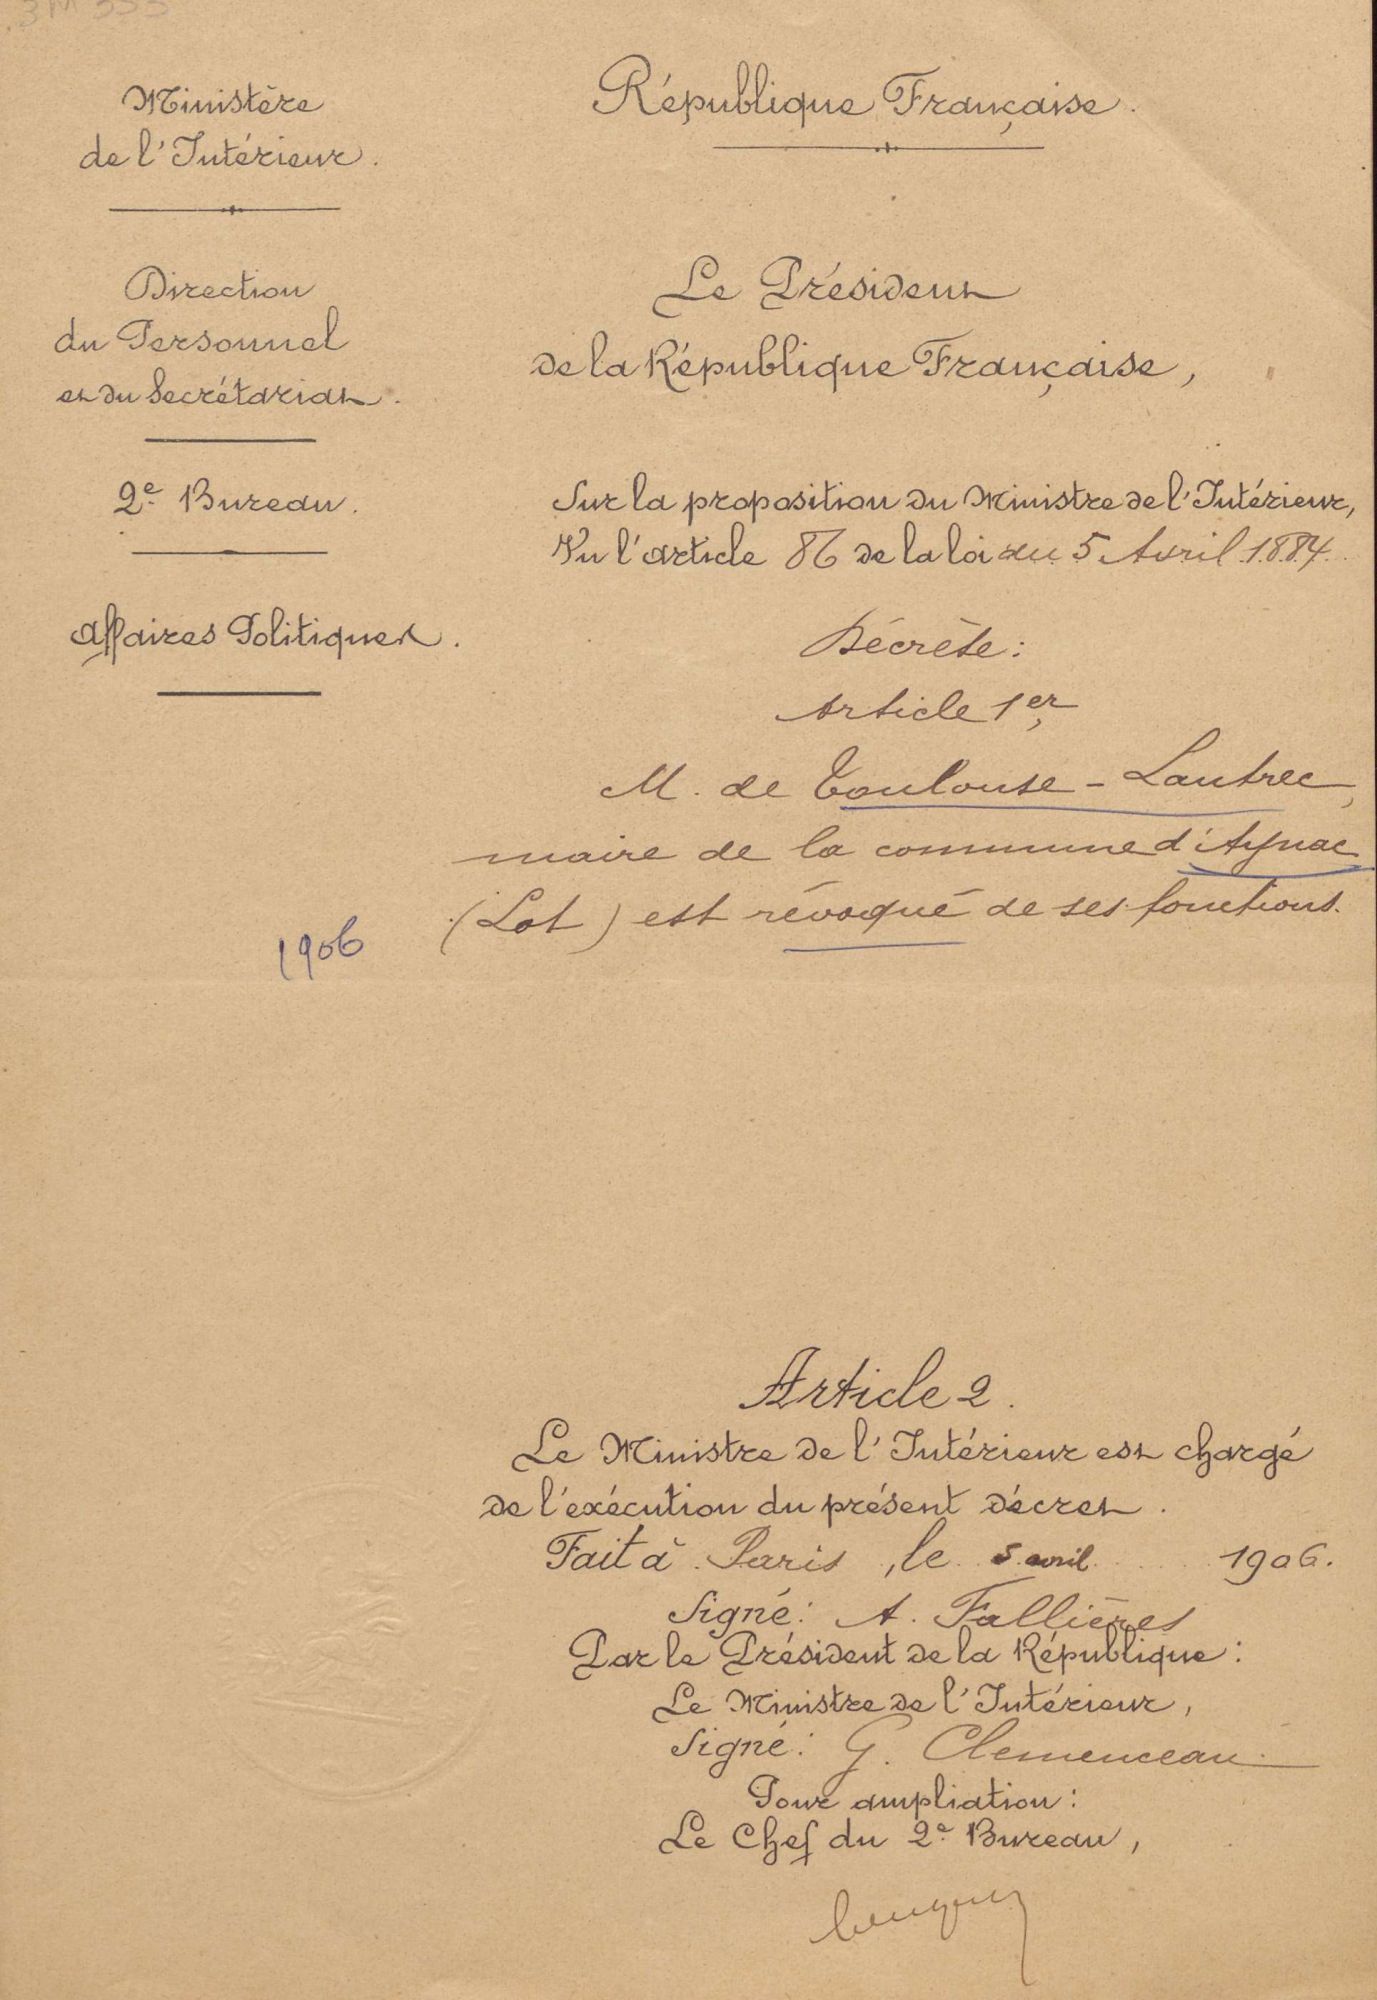 3M 355
Ministère
de l'Intérieur.
Direction
du Personnel
et du Secrétariat.
2e Bureau.
Affaires Politiques.
1906
République Française.
Le Président
de la République Française,
Sur la proposition du Ministre de l'Intérieur,
Vu l'article 86 de la loi du 5 Avril 1884
Décrète:
Article 1er
M. de Toulouse-Lautrec,
maire de la commune d'Aynac
(Lot) est révoqué de ses fonctions.
Article 2.
Le Ministre de l'Intérieur est chargé
de l'exécution du présent décret.
Fait à Paris, le 5 avril 1906.
Signé: A. Fallières
Par le Président de la République:
Le Ministre de l'Intérieur,
Signé: G. Clemenceau.
Pour ampliation:
Le Chef du 2e Bureau,